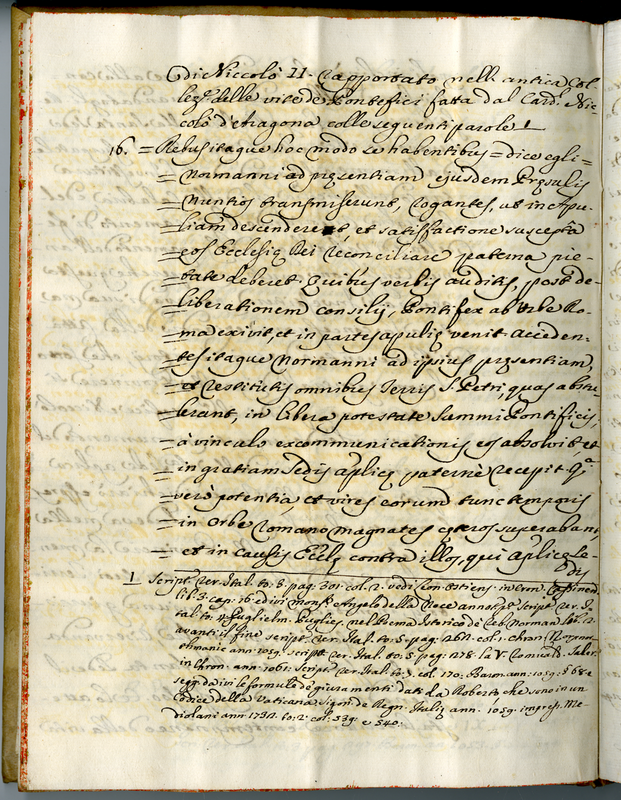 di Niccolò II. rapportato nell'antica Col-
lez.e delle vite de Pontefici fatta dal Card. Nic-
colò d'Aragona colle seguenti parole 1
16. = Rebus itaque hoc modo se habentibus = dice egli =
= Normanni ad pręsentiam ejusdem Pręsulis
= Nuntios transmiserunt, rogantes, ut in Apu-
= liam descenderet, et satisfactione suscepta
= eos Ecclesię Dei reconciliare paterna pie-
= tate deberet. Quibus verbis auditis, post de-
= liberationem consilij, Pontifex ab Urbe Ro-
= ma exivit, et in partes Apulię venit. Acceden-
= tes itaque Normanni ad ipsius pręsentiam,
= et restitutis omnibus Terris S. Petri, quas abstu-
= lerant, in libera potestate Summi Pontificis,
= à vinculo excommunicationis eos absolvit, et
= in gratiam Sedis Aplicę paternè recepit. Q.a
= verò potentia, et vires eorum tunc temporis
= in Orbe Romano magnates cęteros superabant,
= et in causis Ecclę contra illos, qui Aplicę Se-
dis
1 Script. rer. Ital. to: 3. pag. 301. col. 2. vedi Leon Ostiens. in Cron. Cassinen.
lib. 3. cap: 16. ed ivi Mons.r Angelo della Noce annot. Script. rer. I-
tal. to: 4. Guglielm. Puglies. nel Poema Istorico de reb. Norman. lib. 2.
avanti il fine script. rer. Ital. to: 5. pag. 262. col. 1. Chron.
ann. 1059. script. rer. Ital. to: 5. pag. 278. la V. Romuald. Saler.
in Chron. ann. 1061. Script. rer. Ital. to: 7. col. 170. Baron. ann: 1059. § 68. e
seg. da ivi le formule de giuramenti dati da Roberto, che sono in un
Codice della Vaticana Sigon. de Regn. Italię ann. 1059. impress. Me-
diolani ann. 1732. to: 2. col: 539. e 540.